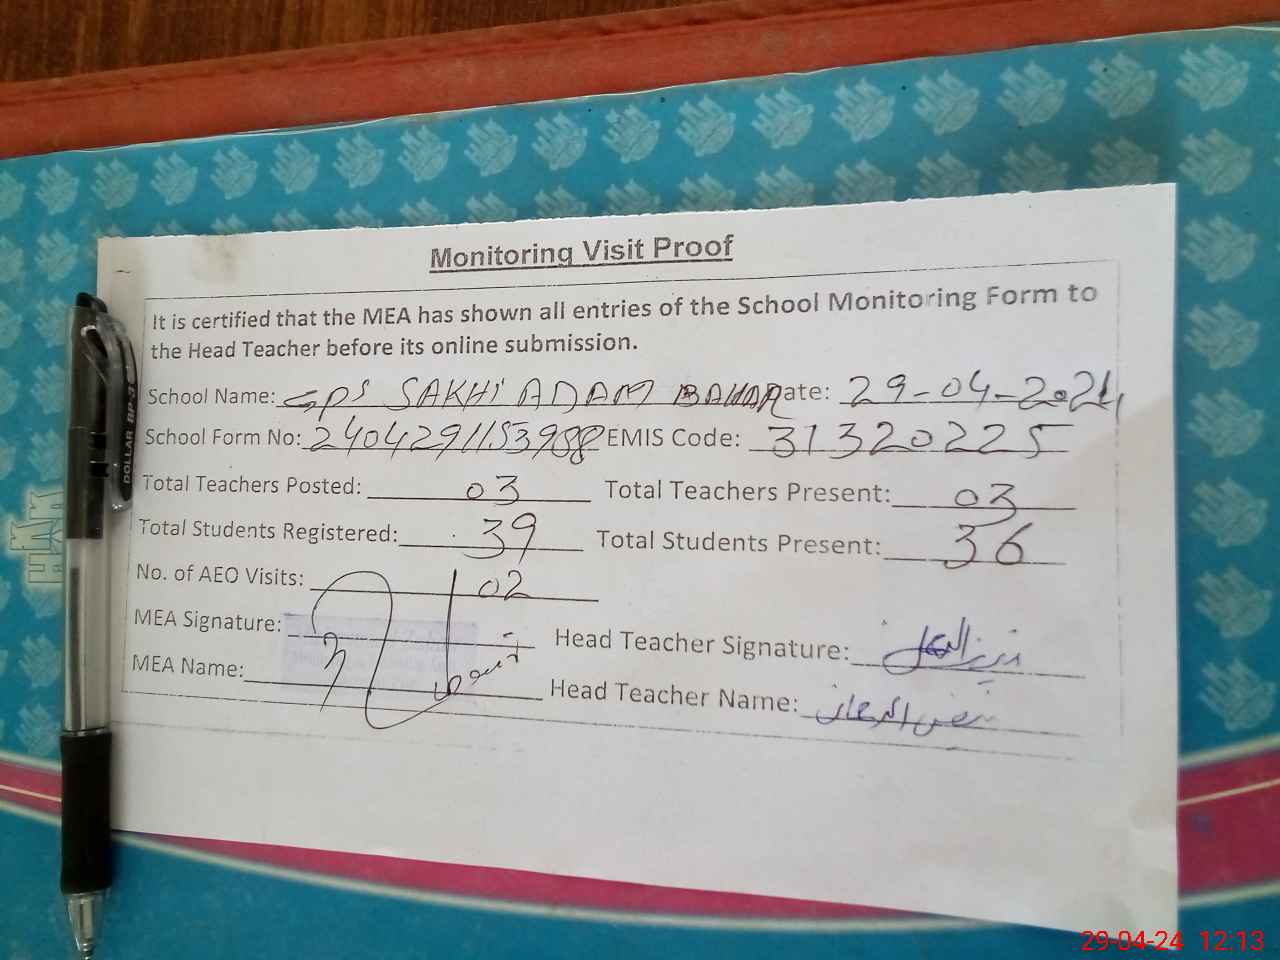 Monitoring Visit Proof
It is certified that the MEA has shown all entries of the School Monitoring Form to
the Head Teacher before its online submission.
School Name: GPS SAKHI ADAM BAHAR ate: 29-04-2024
School Form No: 2404291153988 EMIS Code: 31320225
Total Teachers Posted: 03 Total Teachers Present: 03
Total Students Registered: 39 Total Students Present: 36
No. of AEO Visits: 02
MEA Signature: Head Teacher Signature:
MEA Name: Head Teacher Name:
DOLLAR
29-04-24 12:13